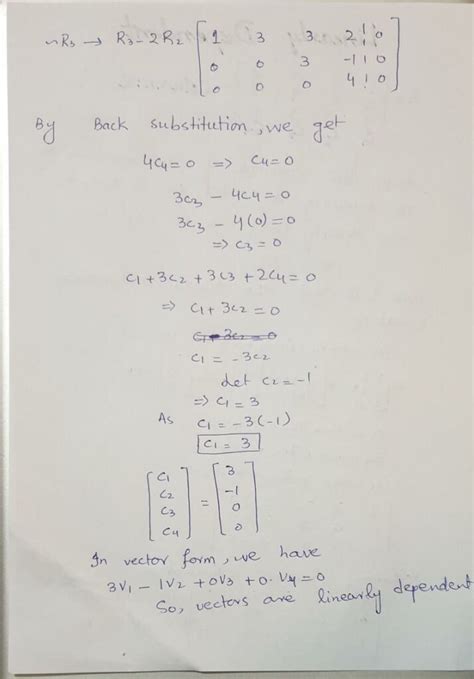 ~R3 → R3 - 2R2 [ 1 3 3 2 | 0
0 0 3 -1 | 0
0 0 0 4 | 0 ]
By Back substitution, we get
4C4 = 0 => C4 = 0
3C3 - 4C4 = 0
3C3 - 4(0) = 0
=> C3 = 0
C1 + 3C2 + 3C3 + 2C4 = 0
=> C1 + 3C2 = 0
C1 = -3C2
Let C2 = -1
=> C1 = 3
As C1 = -3(-1)
C1 = 3
[ C1 C2 C3 C4 ] = [ 3 -1 0 0 ]
In vector form, we have
3V1 - 1V2 + 0V3 + 0.V4 = 0
So, vectors are linearly dependent